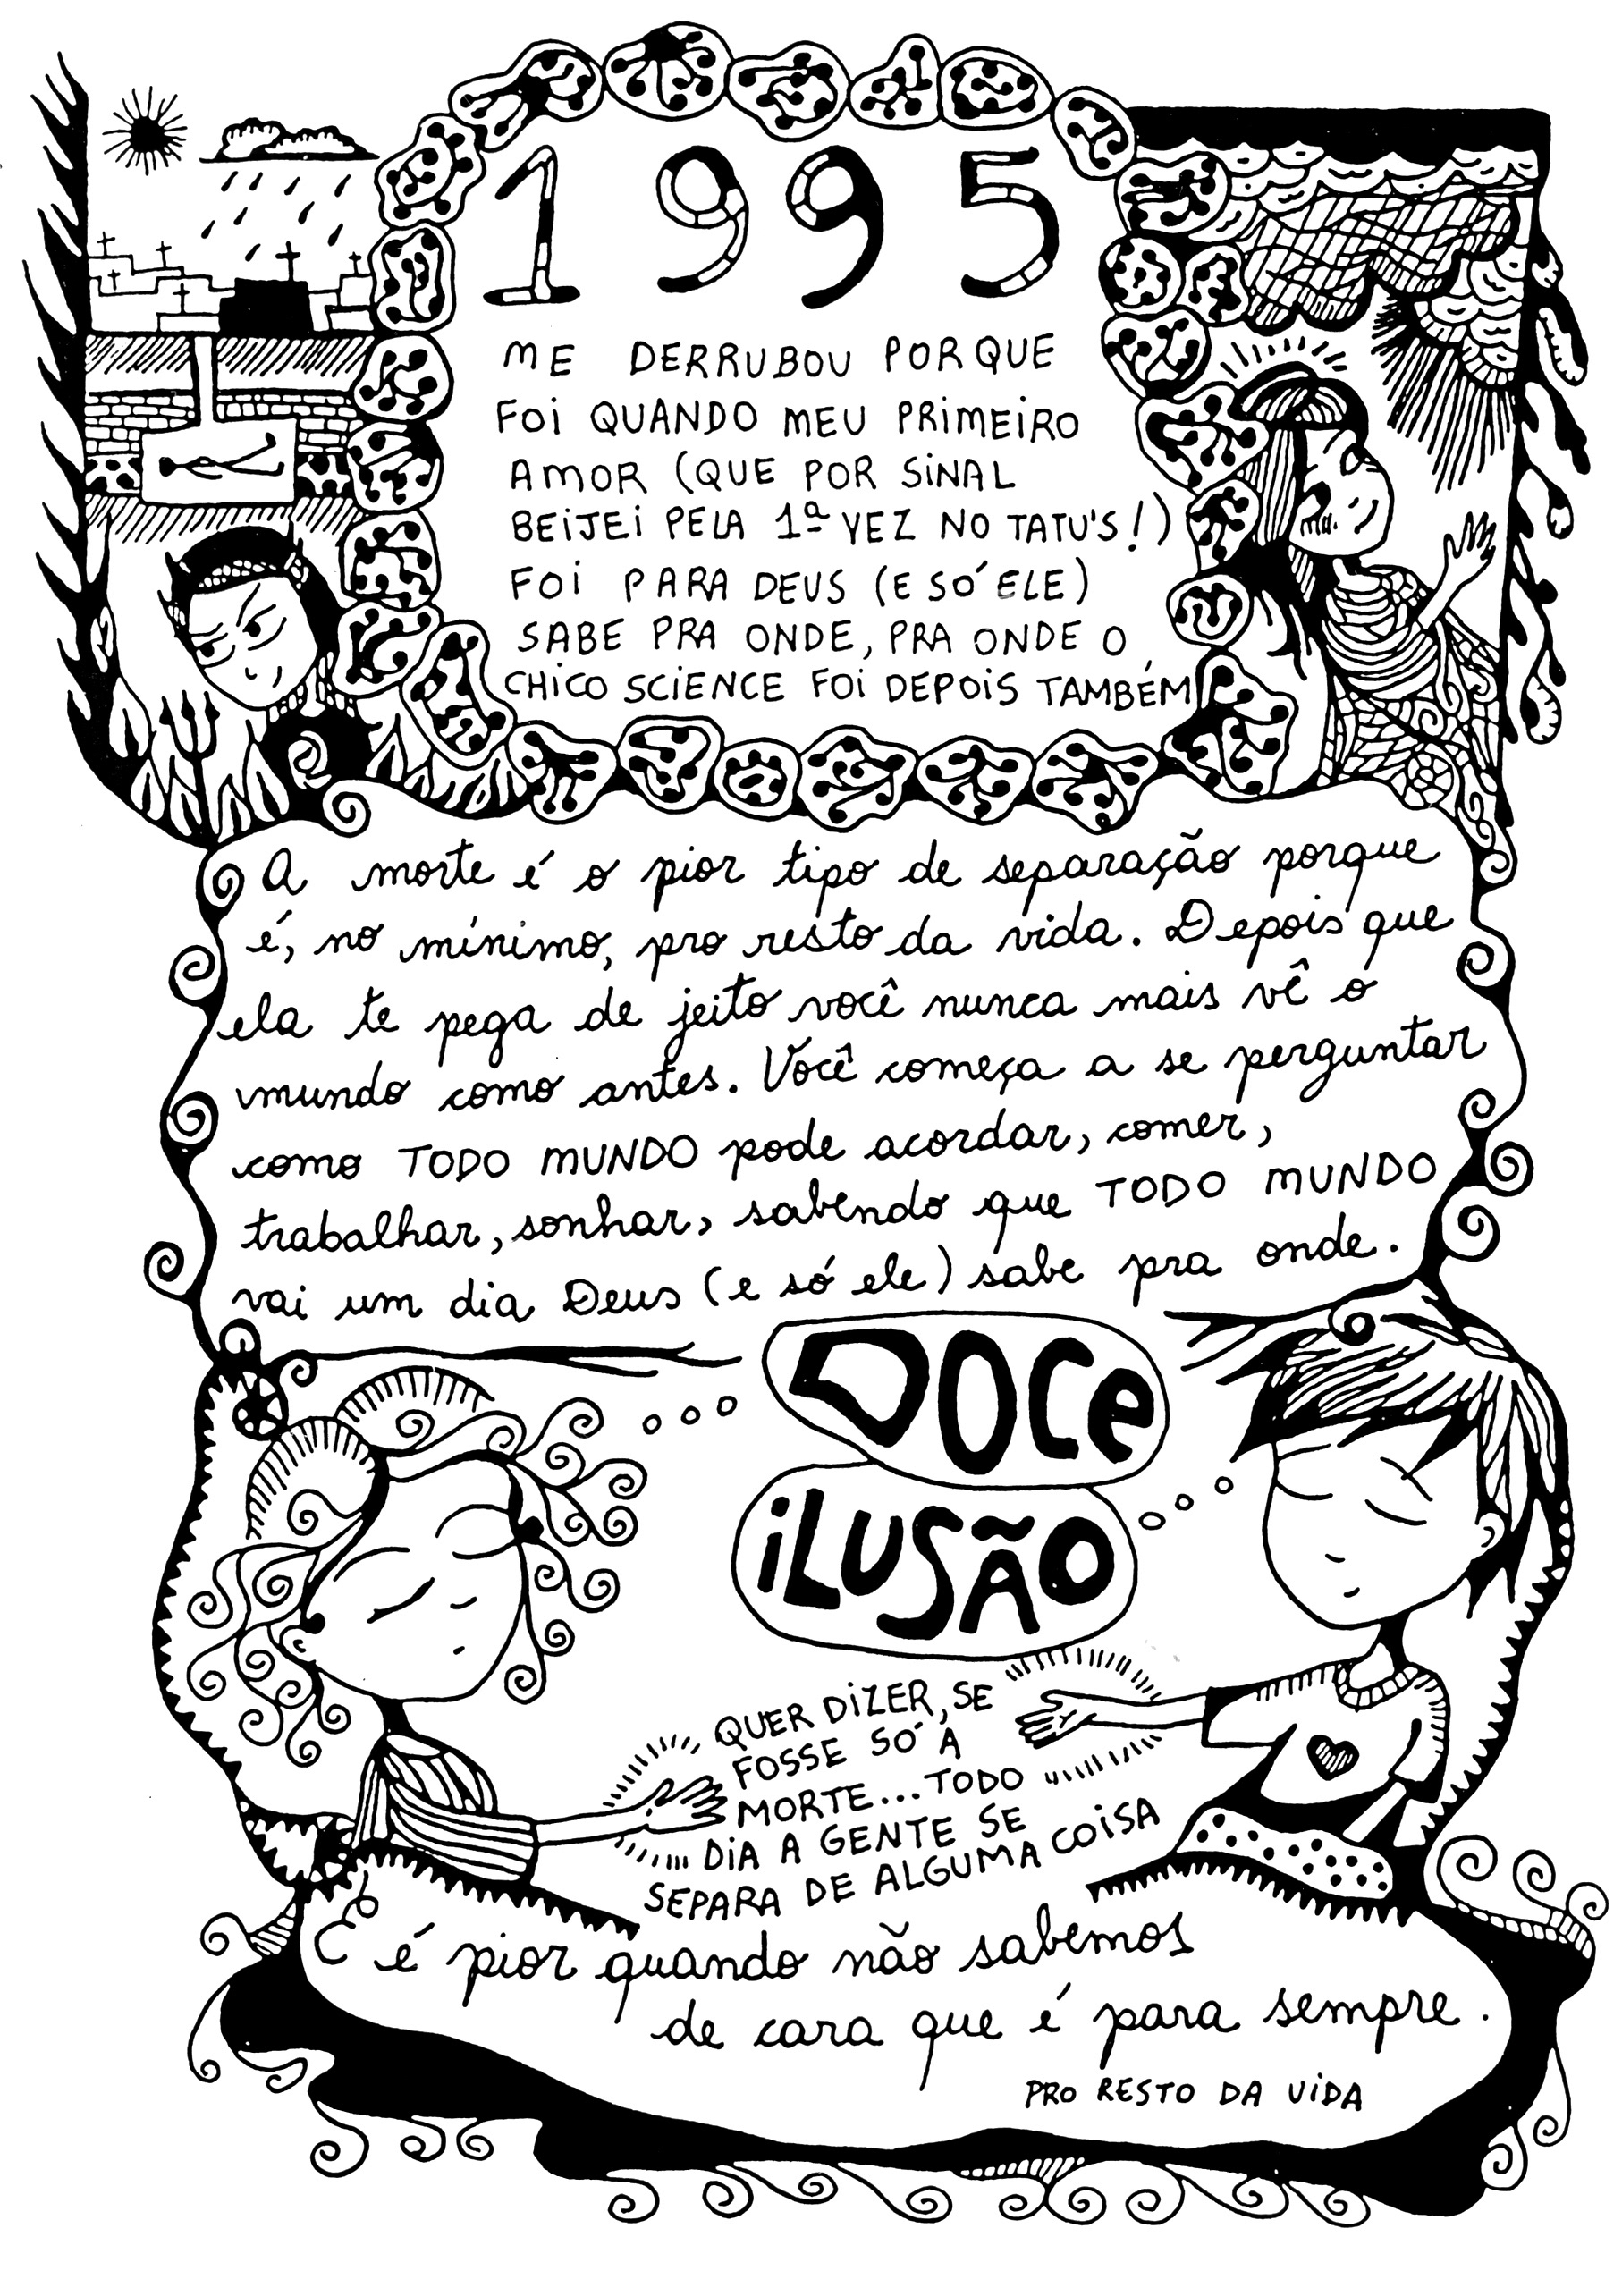 1995
ME DERRUBOU PORQUE
FOI QUANDO MEU PRIMEIRO
AMOR (QUE POR SINAL
BEIJEI PELA 1ª VEZ NO TATU'S!)
FOI PARA DEUS (E SÓ ELE)
SABE PRA ONDE, PRA ONDE O
CHICO SCIENCE FOI DEPOIS TAMBÉM
A morte é o pior tipo de separação porque
é, no mínimo, pro resto da vida. Depois que
ela te pega de jeito você nunca mais vê o
mundo como antes. Você começa a se perguntar
como TODO MUNDO pode acordar, comer,
trabalhar, sonhar, sabendo que TODO MUNDO
vai um dia Deus (e só ele) sabe pra onde.
DOCE
ILUSÃO
QUER DIZER, SE
FOSSE SÓ A
MORTE... TODO
DIA A GENTE SE
SEPARA DE ALGUMA COISA
E é pior quando não sabemos
de cara que é para sempre.
PRO RESTO DA VIDA